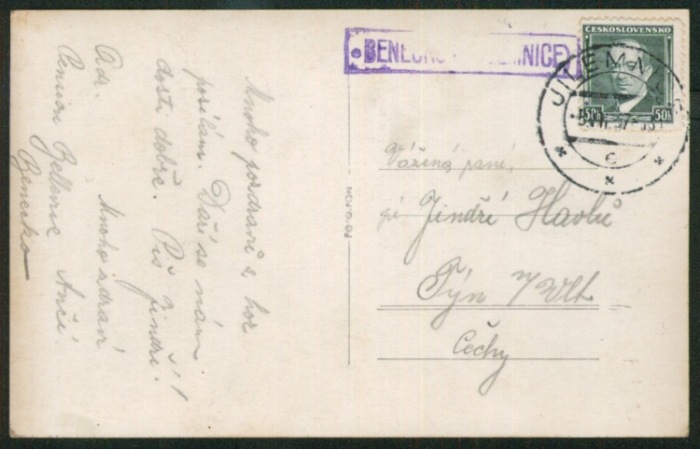 Mnoho pozdravů z hor
posílám. Daří se nám
dosti dobře. Piš
Jindří!
Mnoho zdraví
Anči.
Adr.
Pension Bellevue
Benecko
BENECKO
ČESKOSLOVENSKO
50h 50h
JILEMNICE
Vážená paní,
Jindř. Havlů
Týn n/Vlt
Čechy